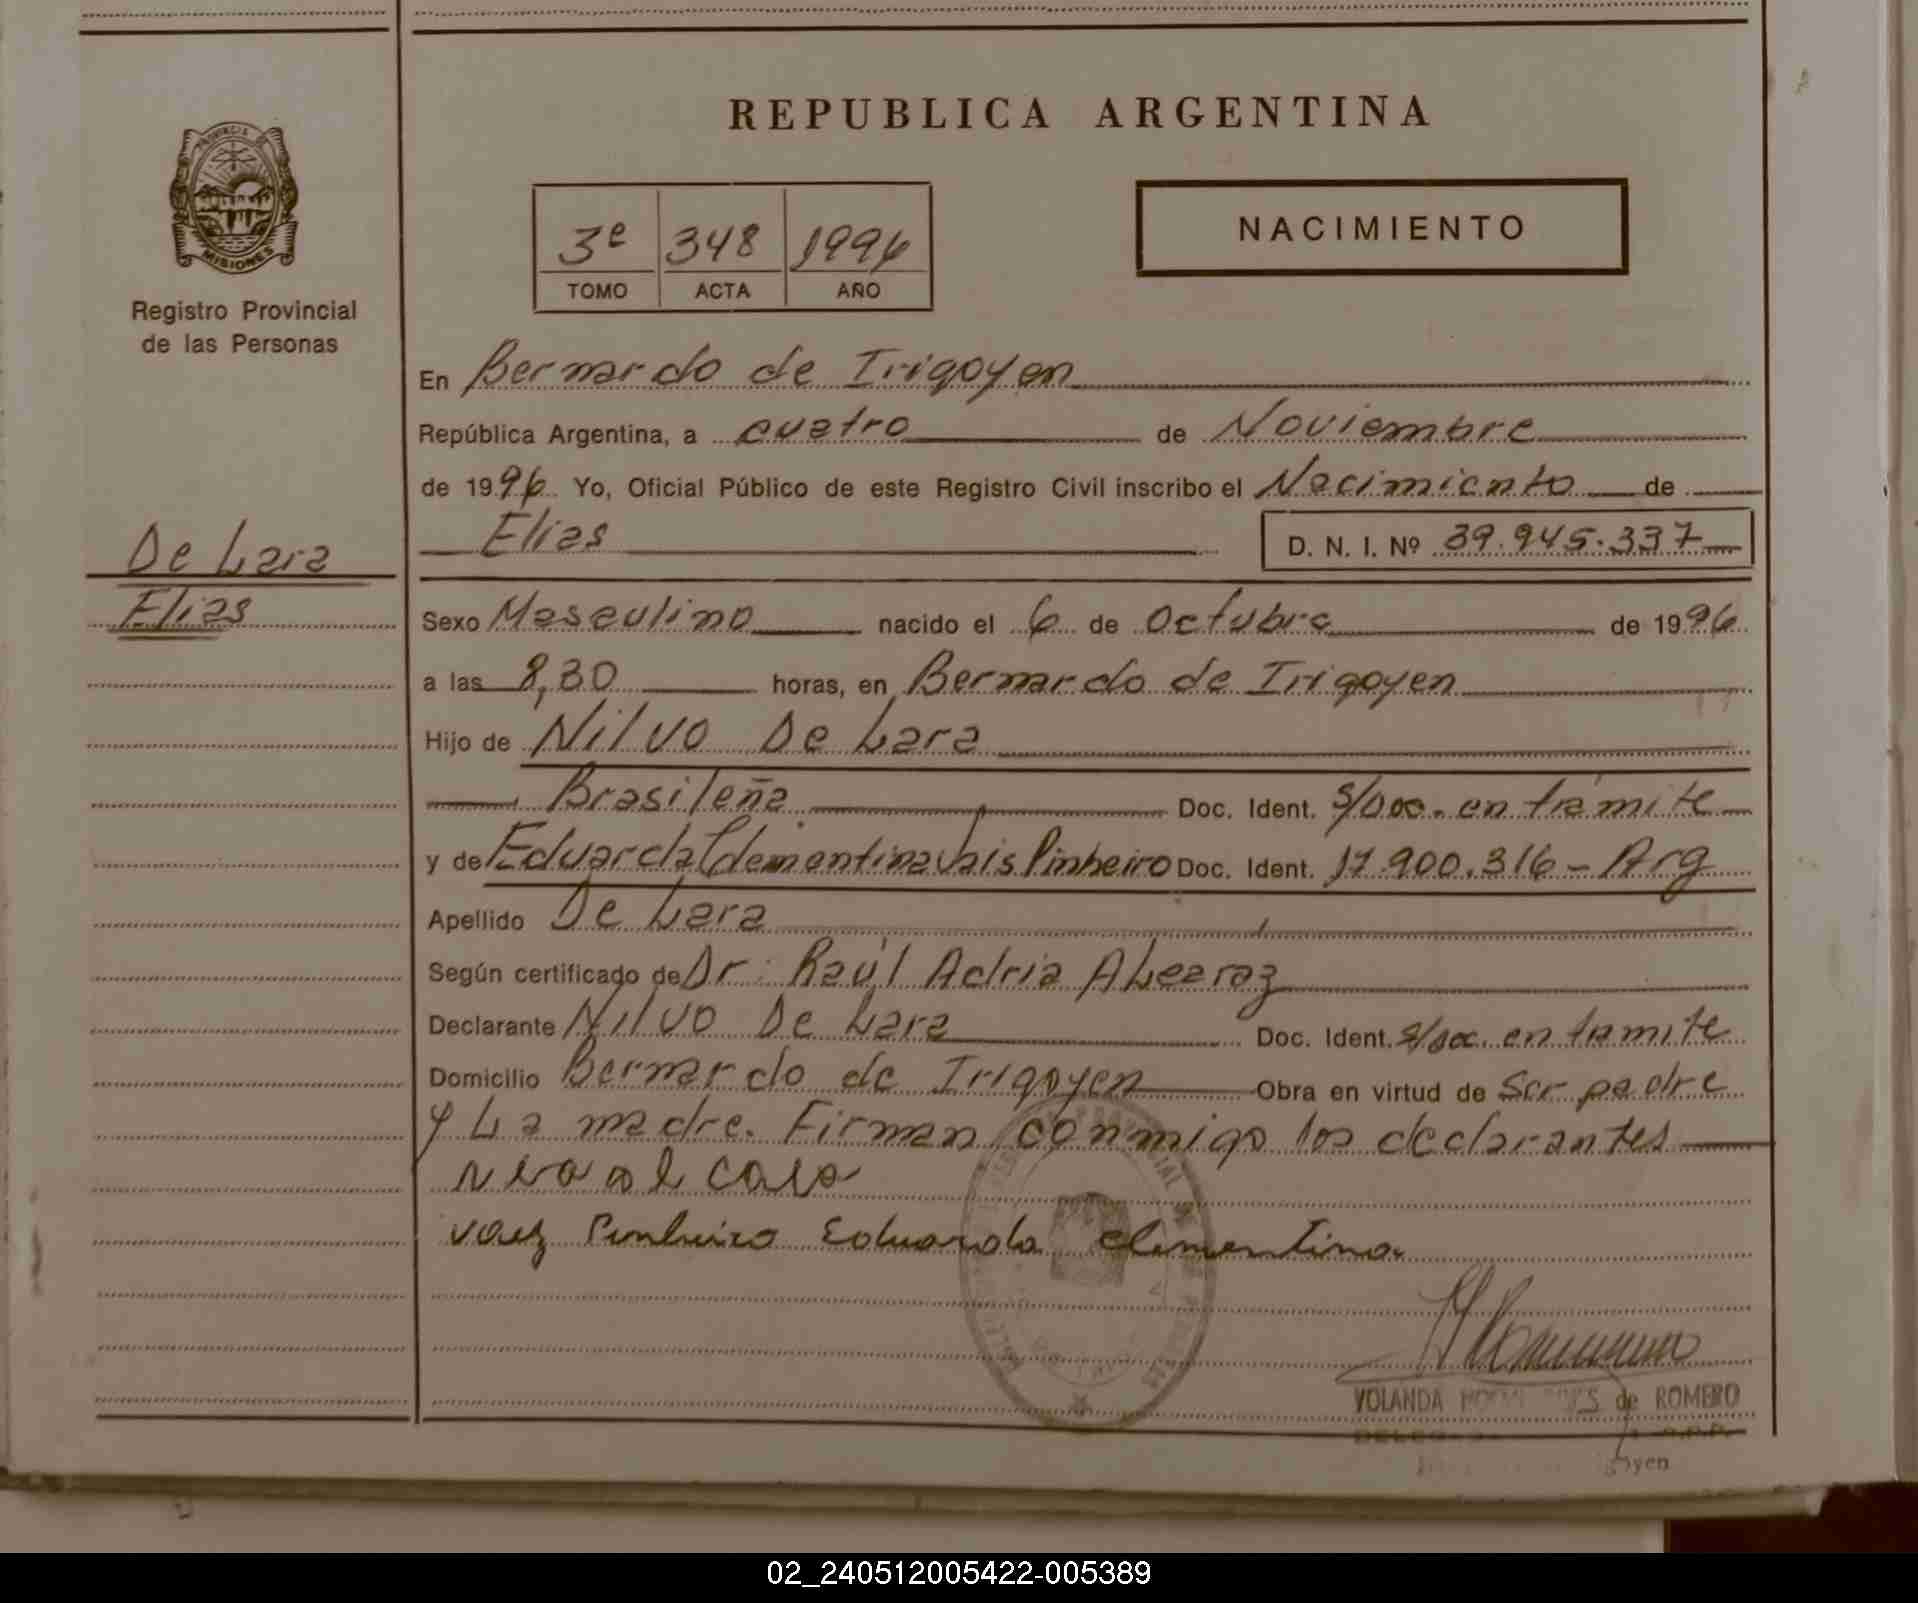 REPUBLICA ARGENTINA
PROVINCIA
MISIONES
Registro Provincial
de las Personas
3e 348 1996
TOMO ACTA AÑO
NACIMIENTO
En Bernardo de Irigoyen
República Argentina, a cuatro de Noviembre
de 1996 Yo, Oficial Público de este Registro Civil inscribo el Nacimiento de
Elias D. N. I. Nº 39.945.337
De Lara
Elias
Sexo Masculino nacido el 6 de Octubre de 1996
a las 8,30 horas, en Bernardo de Irigoyen
Hijo de Nilvo De Lara
Brasileña Doc. Ident. s/Doc. en tramite
y de Eduarda Clementina Vais Pinheiro Doc. Ident. 17.900.316 - Arg
Apellido De Lara
Según certificado de Dr. Raúl Adria ALcaraz
Declarante Nilvo De Lara Doc. Ident. s/doc. en tramite
Domicilio Bernardo de Irigoyen Obra en virtud de Ser padre
y La madre. Firman conmigo los declarantes
Vaez Pinheiro Eduarda Clementina
YOLANDA de ROMERO
02_240512005422-005389